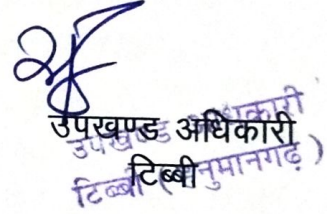 उपखण्ड अधिकारी
उपखण्ड अधिकारी
टिब्बी
टिब्बी (हनुमानगढ़)